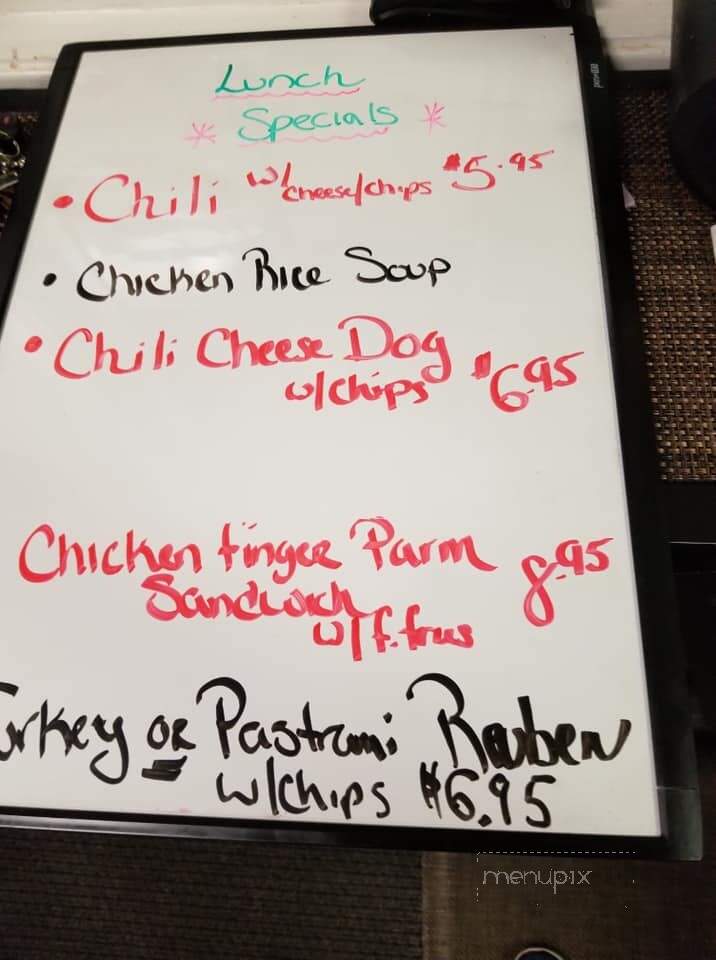 Lunch
Specials
• Chili w/ cheese/chips $5.95
• Chicken Rice Soup
• Chili Cheese Dog
w/chips $6.95
Chicken finger Parm 8.95
Sandwich
w/f.fries
Turkey or Pastrami Reuben
w/chips $6.95
menupix